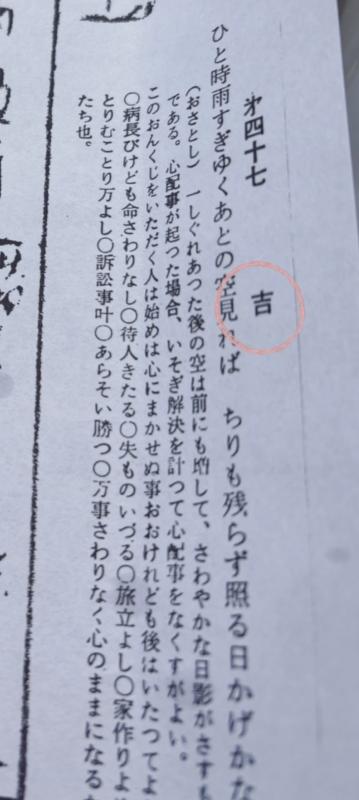 才四十七
吉
ひと時雨すぎゆくあとの空見れば　ちりも残らず照る日かげかな
(おさとし)　一しぐれあった後の空は前にも増して、さわやかな日影がさすも
である。心配事が起つた場合、いそぎ解決を計つて心配事をなくすがよい。
このおんくじをいただく人は始めは心にまかせぬ事おおけれども後はいたつてよ
〇病長びけども命さわりなし〇待人きたる〇失ものいづる〇旅立よし〇家作りよ
とりむことり万よし〇訴訟事叶〇あらそい勝つ〇万事さわりなく、心のままになる
たち也。